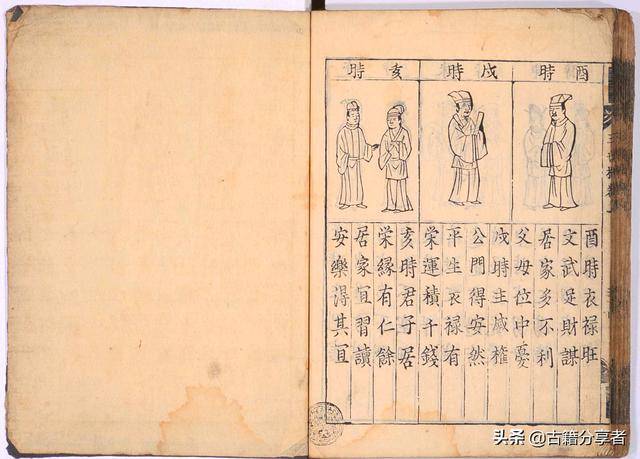 酉時
戌時
亥時
酉時衣禄旺
文武足財謀
居家多不利
父母位中憂
戌時主威權
公門得安然
平生衣禄有
栄運積千錢
亥時君子居
栄縁有仁餘
居家宜習讀
安樂得其宜
头条 @古籍分享者